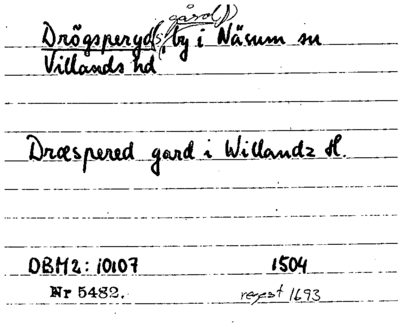 gård()
Drögsperyd(s), by i Näsum sn
Villands hd
Dræspered gard i Willandz H.
DBM2: 10107 1504
Nr 5482. regest 1693